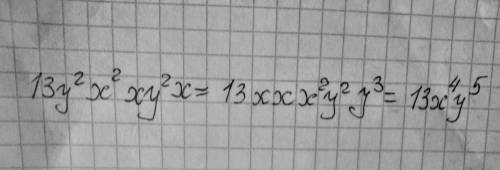 13y²x²xy²x = 13xxx²y²y³ = 13x⁴y⁵